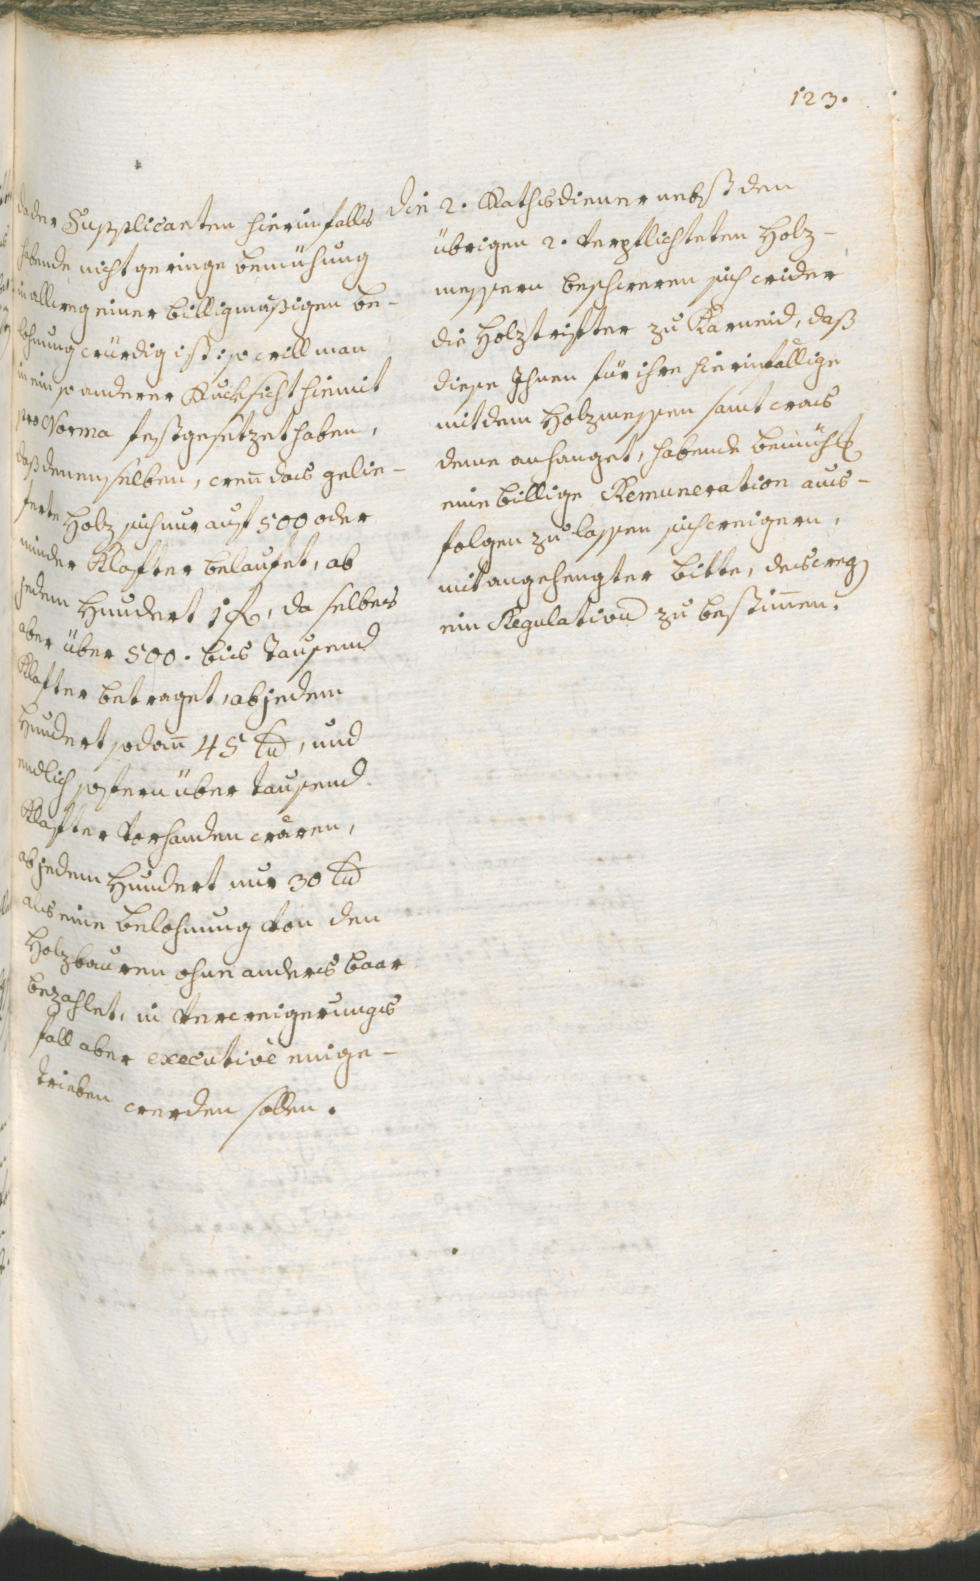 123.
da der Supplicanten hierinfalls
habende nicht geringe bemühung
in allweg einer billigmäßigen be-
lohnung würdig ist: so will man
in ein so anderer Rucksicht hiemit
pro Norma festgesetzet haben,
daß denenselben, weñ das gelie-
ferte Holz sich nur auf 500 oder
minder Klafter belaufet, ab
jedem Hundert 1 f, da selbes
aber über 500. bis Tausend
Klafter betraget, ab jedem
Hundert sodañ 45 kr, und
endlich sofern über Tausend
Klafter vorhanden wären,
ab jedem Hundert nur 30 kr
als eine belohnung von den
Holzbauren ohne anders baar
bezahlet, in Verweigerungs
fall aber executivè einge-
trieben werden sollen.
Die 2. Rathsdiener nebst den
übrigen 2. verpflichteten Holz-
messern beschweren sich wider
die Holztrifter zu Karneid, daß
diese Ihnen für ihre hierinfällige
mit dem Holzmessen samt was
deme anhanget, habende bemühg
eine billige Remuneration aus-
folgen zu lassen sich weigern,
mit angehengter bitte, desweg
ein Regulativ zu bestim̄en.